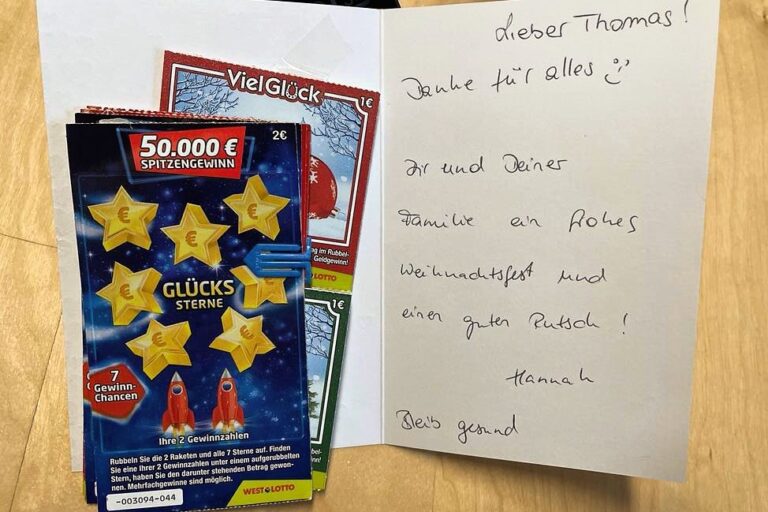 Viel Glück
1€
50.000 €
SPITZENGEWINN
2€
GLÜCKS
STERNE
7
Gewinn-
Chancen
Ihre 2 Gewinnzahlen
Rubbeln Sie die 2 Raketen und alle 7 Sterne auf. Finden
Sie eine Ihrer 2 Gewinnzahlen unter einem aufgerubbelten
Stern, haben Sie den darunter stehenden Betrag gewon-
nen. Mehrfachgewinne sind möglich.
WESTLOTTO
-003094-044
im Rubbel-
Geldgewinn!
LOTTO
1€
Lieber Thomas!
Danke für alles :)
Dir und Deiner
Familie ein frohes
Weihnachtsfest und
einen guten Rutsch!
Hannah
Bleib gesund